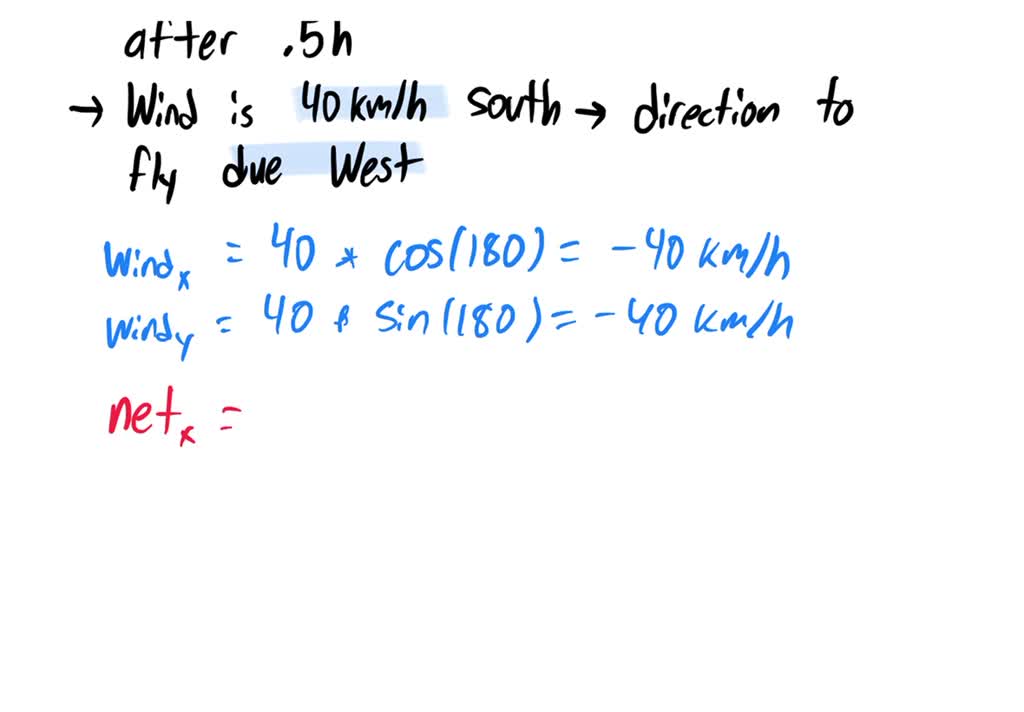 after .5h
→ Wind is 40 km/h south → direction to
fly due West
Wind x = 40 * cos(180) = -40 km/h
Wind y = 40 * sin(180) = -40 km/h
net x =